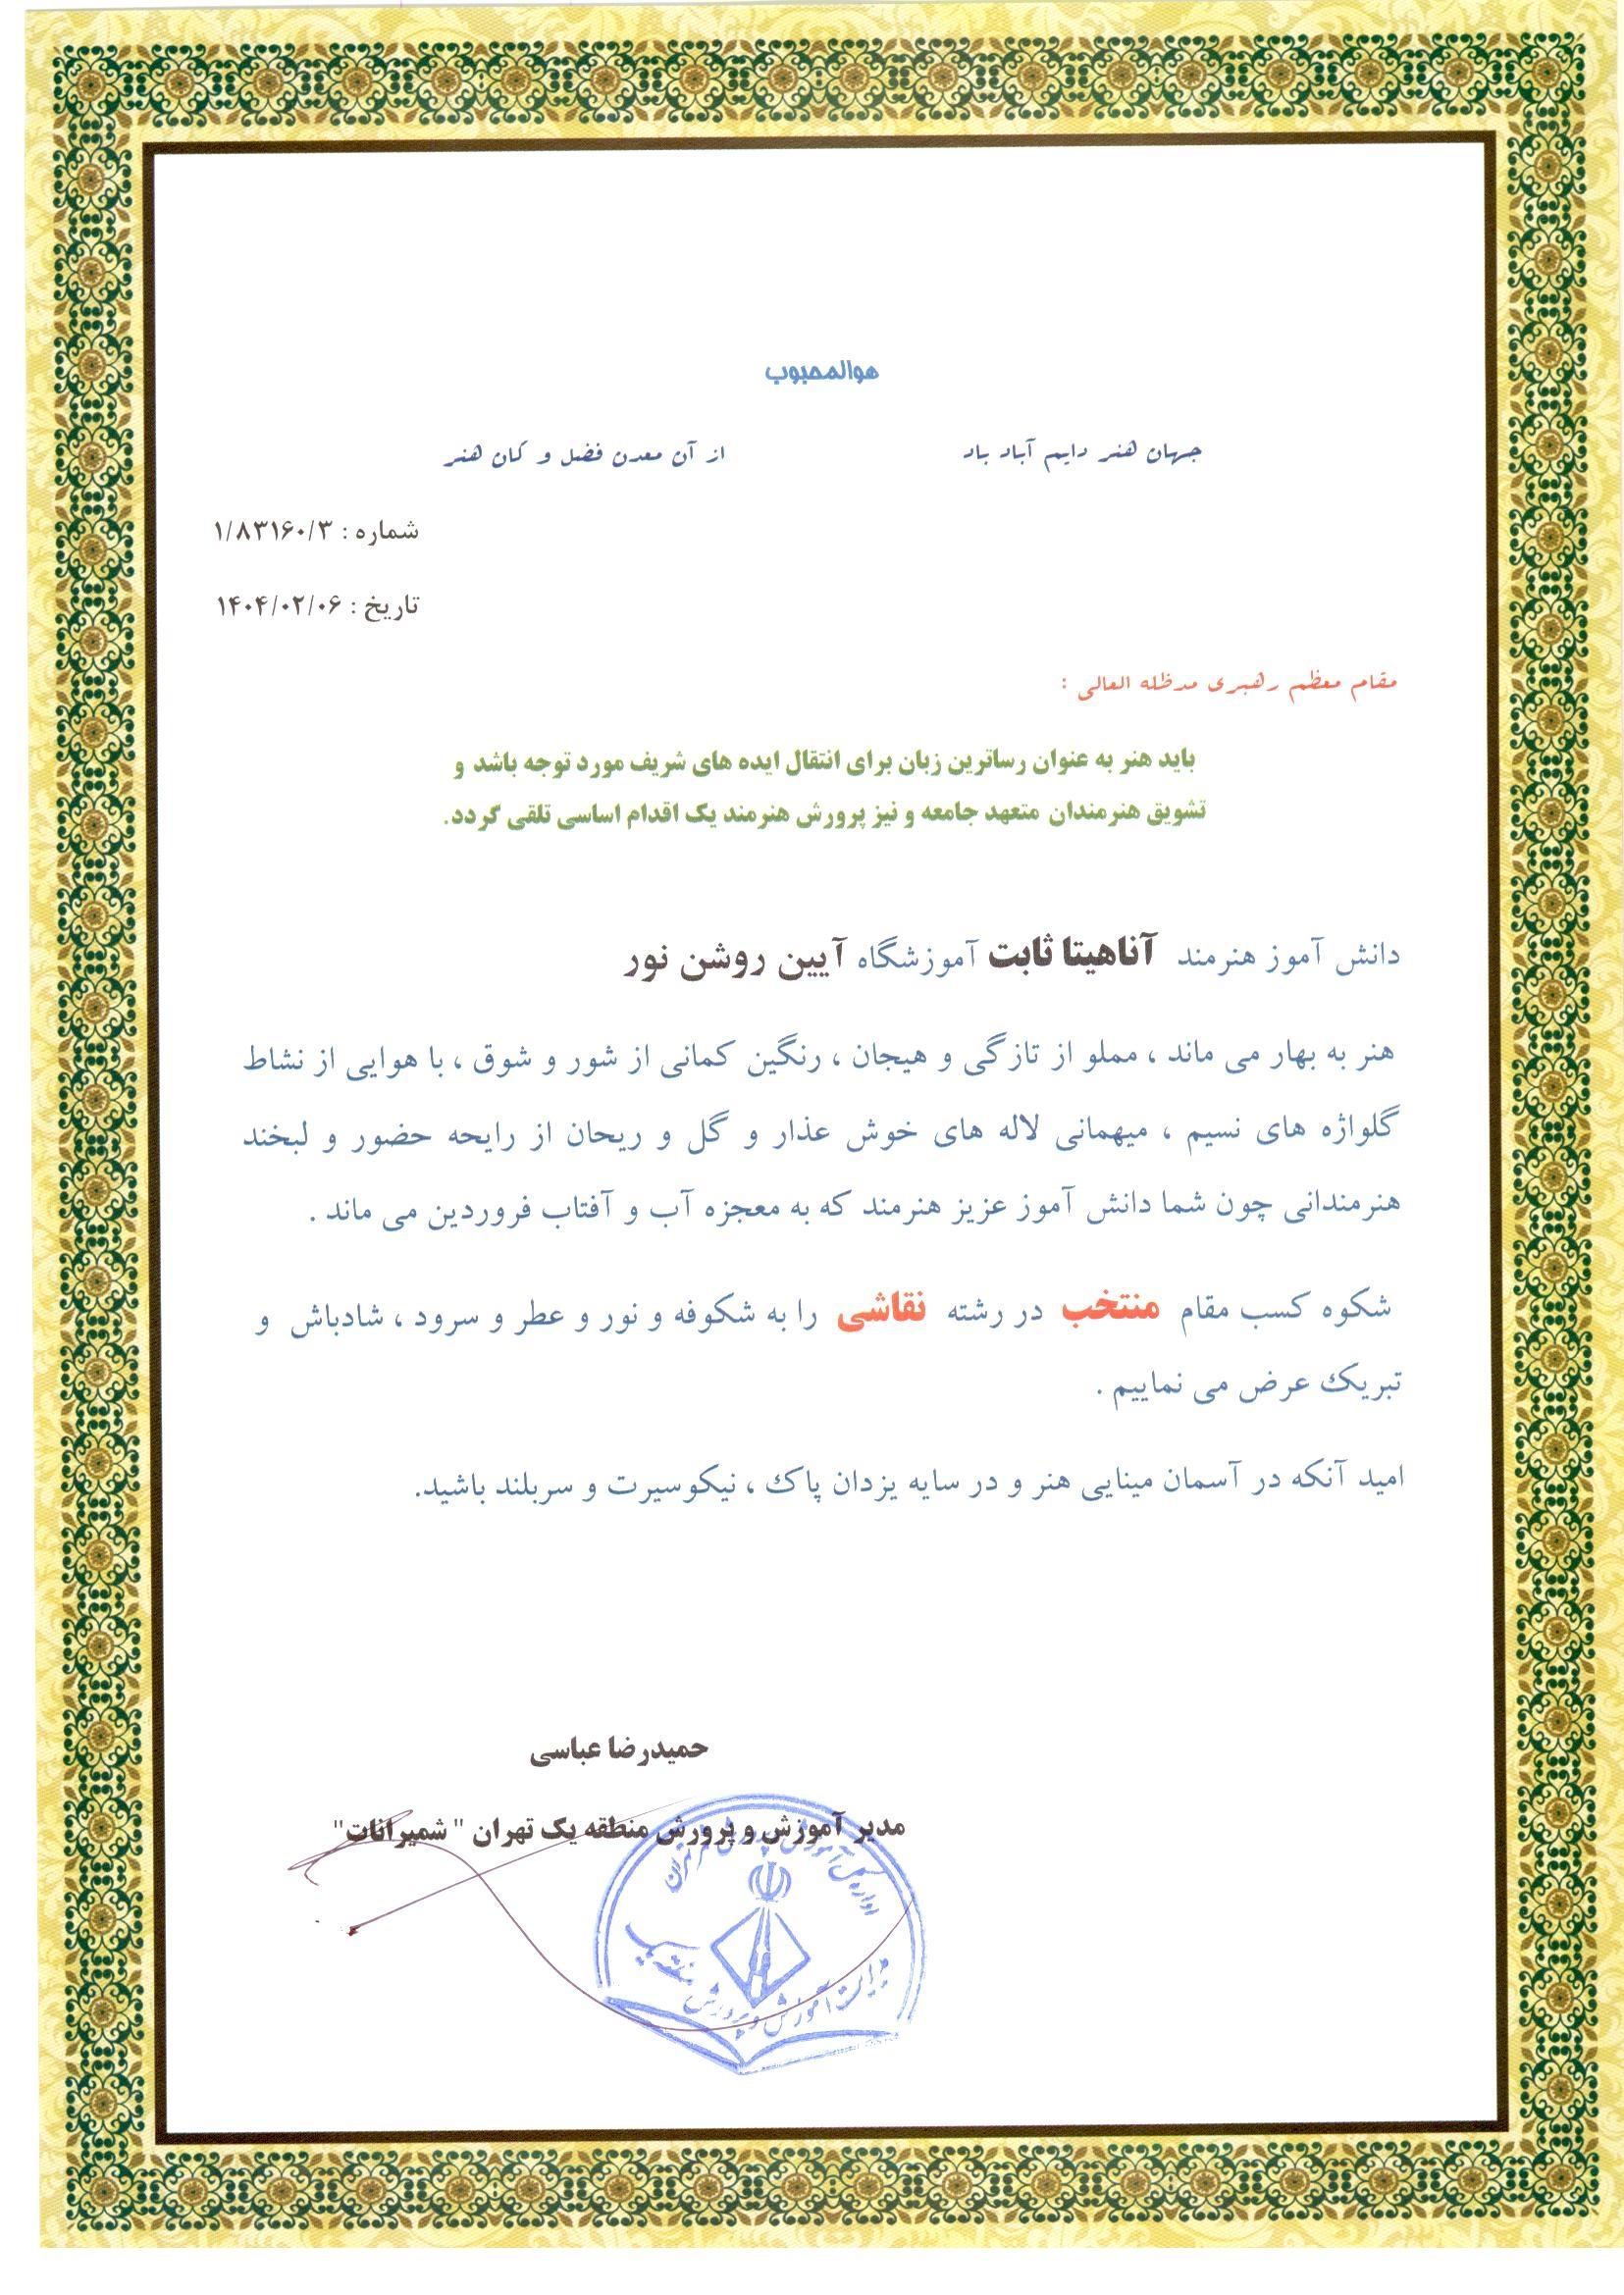 هوالمحبوب
جهان هنر دایم آباد باد از آن معدن فضل و کان هنر
شماره : ۱/۸۳۱۶۰/۳
تاریخ : ۱۴۰۴/۰۲/۰۶
مقام معظم رهبری مدظله العالی :
باید هنر به عنوان رساترین زبان برای انتقال ایده های شریف مورد توجه باشد و
تشویق هنرمندان متعهد جامعه و نیز پرورش هنرمند یک اقدام اساسی تلقی گردد.
دانش آموز هنرمند آناهیتا ثابت آموزشگاه آیین روشن نور
هنر به بهار می ماند ، مملو از تازگی و هیجان ، رنگین کمانی از شور و شوق ، با هوایی از نشاط
گلواژه های نسیم ، میهمانی لاله های خوش عذار و گل و ریحان از رایحه حضور و لبخند
هنرمندانی چون شما دانش آموز عزیز هنرمند که به معجزه آب و آفتاب فروردین می ماند .
شکوه کسب مقام منتخب در رشته نقاشی را به شکوفه و نور و عطر و سرود ، شادباش و
تبریک عرض می نماییم .
امید آنکه در آسمان مینایی هنر و در سایه یزدان پاک ، نیکوسیرت و سربلند باشید.
حمیدرضا عباسی
مدیر آموزش و پرورش منطقه یک تهران " شمیرانات"
اداره کل آموزش و پرورش شهر تهران
مدیریت آموزش و پرورش منطقه یک